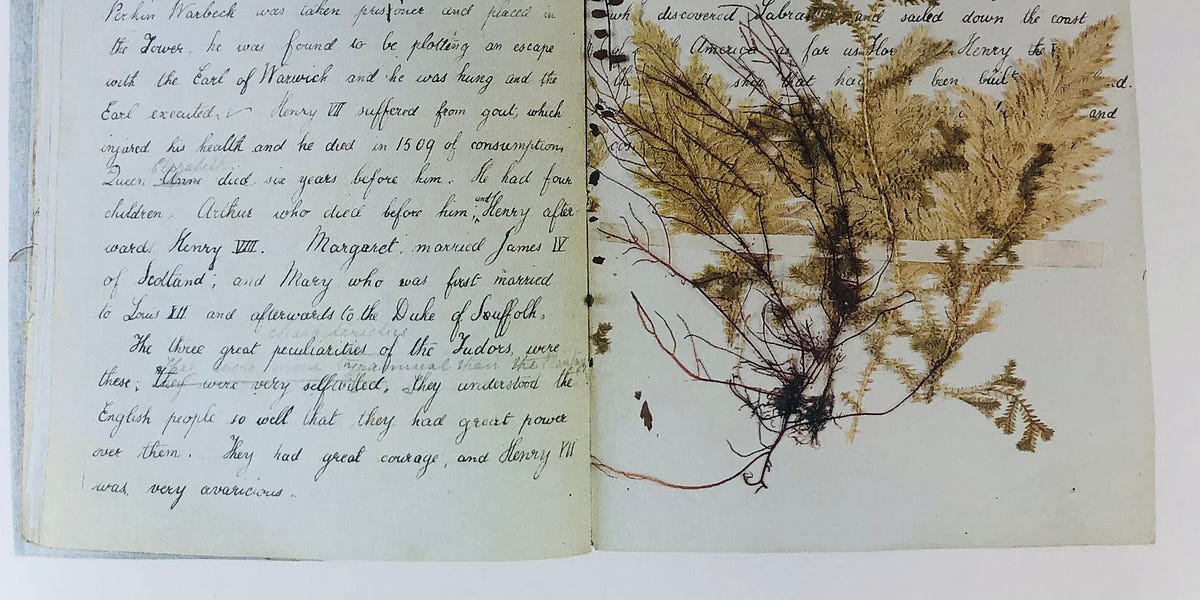 Perkin Warbeck was taken prisoner and placed in
the Tower, he was found to be plotting an escape
with the Earl of Warwick and he was hung and the
Earl executed. Henry VII suffered from gout, which
injured his health and he died in 1509 of consumption,
Elizabeth
Queen Anne died six years before him. He had four
children. Arthur who died before him; and Henry after-
wards Henry VIII. Margaret married James IV
of Scotland; and Mary who was first married
to Louis XII and afterwards to the Duke of Suffolk.
characteristics
The three great peculiarities of the Tudors, were
They were more tyrannical than the
these; they were very selfwilled, they understood the
English people so well that they had great power
over them. They had great courage, and Henry VII
was very avaricious.
discovered Labrador and sailed down the coast
America as far as Henry the
ship that had been built
and